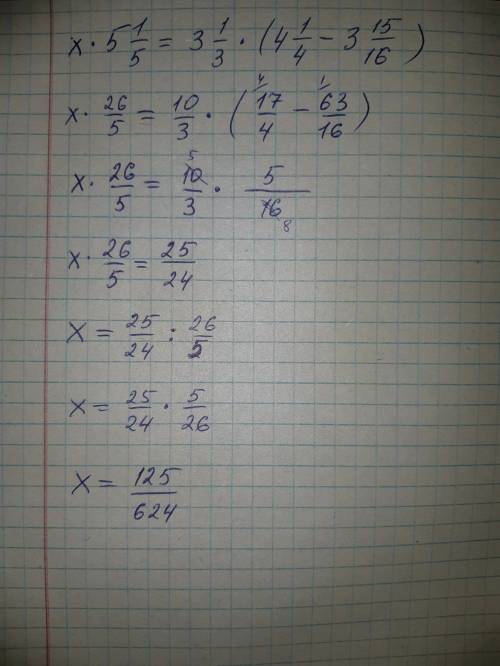 x · 5 1/5 = 3 1/3 · (4 1/4 − 3 15/16)
x · 26/5 = 10/3 · (17/4 − 63/16) 4 1
x · 26/5 = 10/3 · 5/16 5 8
x · 26/5 = 25/24
x = 25/24 : 26/5
x = 25/24 · 5/26
x = 125/624